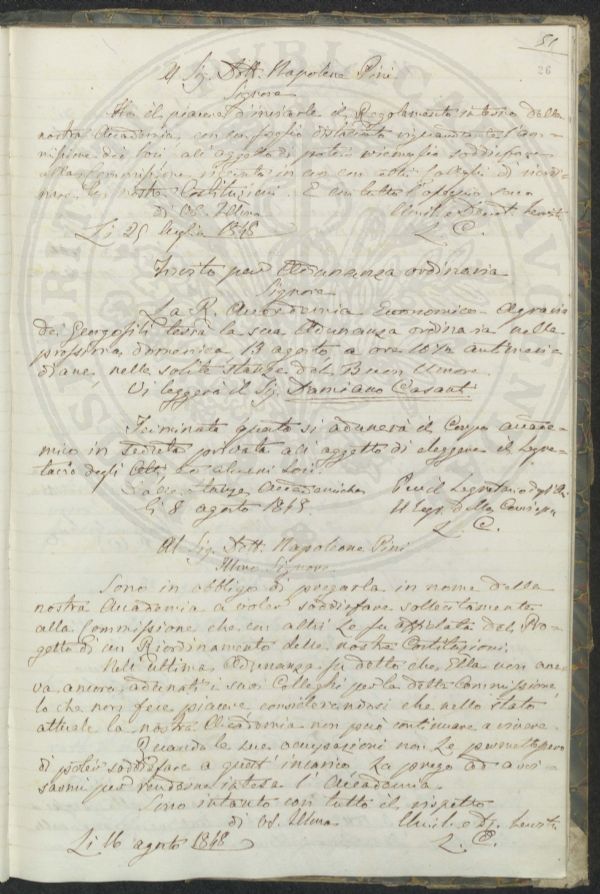 51
26
Al Sig. Dott. Napoleone Pini
Signore
Ho il piacere d'inviarle il Regolamento interno della
nostra Accademia con un foglio distaccato riguardante l'am-
missione dei Soci all'oggetto di poterci
alla Commissione con altri Colleghi di riordi-
nare le nostre Costituzioni. E con tutto l'ossequio sono
di VS. Illma
Li 25 luglio 1848
L. C.
Invito per Adunanza ordinaria
Signore
La R. Accademia Economico-Agraria
dei Georgofili terrà la sua Adunanza ordinaria nella
prossima domenica 13 agosto a ore 10 1/2 antimeri-
diane, nelle solite stanze del Buon Umore.
Vi leggerà il Sig. Damiano Casanti
Terminata questa si adunerà il Corpo accade-
mico in seduta privata all'oggetto di eleggere il Segre-
tario degli Atti ed alcuni Soci.
Dalle stanze Accademiche
Per il Segretario degli Atti
Li 8 agosto 1848
Il Segr. delle Corrispze
L. C.
Al Sig. Dott. Napoleone Pini
Illmo Signore
Sono in obbligo di pregarla in nome della
nostra Accademia a voler soddisfare sollecitamente
alla Commissione che con altri Le fu affidata del Pro-
getto di un Riordinamento delle nostre Costituzioni.
Nell'ultima Adunanza fu detto che Ella non ave-
va ancora adunati i suoi Colleghi per la detta Commissione,
lo che non fece piacere considerandosi che nello stato
attuale la nostra Accademia non può continuare a vivere.
Quando le sue occupazioni non Le permettessero
di poter soddisfare a quest'incarico La prego ad avvi-
sarmi per renderne intesa l'Accademia.
Sono intanto con tutto il rispetto
di VS. Illma
Li 16 agosto 1848
L. C.